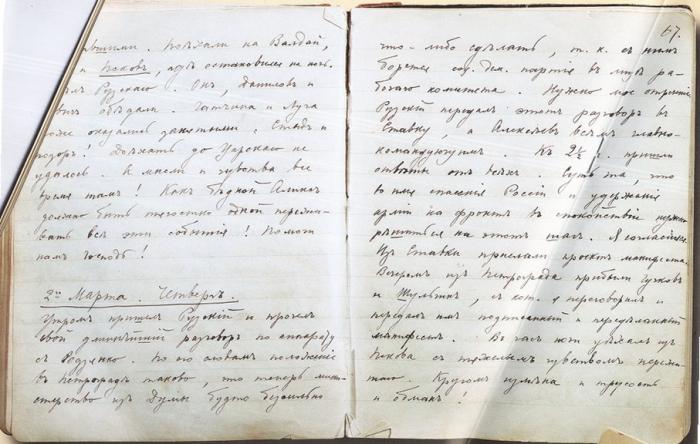 шими. Поѣхали на Валдай,
и Псковъ, гдѣ остановились на ночь.
Рузскаго. Онъ, Даниловъ и
обѣдали. Гатчина и Луга
тоже оказались занятыми. Стыдъ и
позоръ! Доѣхать до Царскаго не
удалось. А мысли и чувства все
время тамъ! Какъ бѣдной Аликсъ
должно быть тягостно одной пережи-
вать всѣ эти событія! Помоги
намъ Господь!
2го Марта. Четвергъ.
Утромъ пришелъ Рузскій и прочелъ
свой длиннѣйшій разговоръ по аппарату
съ Родзянко. По его словамъ положеніе
въ Петроградѣ таково, что теперь мини-
стерство изъ Думы будто безсильно
67.
что-либо сдѣлать, т. к. съ нимъ
борется соц. дем. партія въ лицѣ ра-
бочаго комитета. Нужно мое отреченіе
Рузскій передалъ этотъ разговоръ въ
Ставку, а Алексѣевъ всѣмъ главно-
командующимъ. Къ 2½ ч. пришли
отвѣты отъ всѣхъ. Суть та, что
во имя спасенія Россіи и удержанія
арміи на фронтѣ въ спокойствіи нужно
рѣшиться на этотъ шагъ. Я согласился
Изъ Ставки прислали проектъ манифеста.
Вечеромъ изъ Петрограда прибыли Гучковъ
и Шульгинъ, съ кот. я переговорилъ и
передалъ имъ подписанный и передѣланный
манифестъ. Въ часъ ночи уѣхалъ изъ
Пскова съ тяжелымъ чувствомъ пережи-
таго. Кругомъ измѣна и трусость
и обманъ!